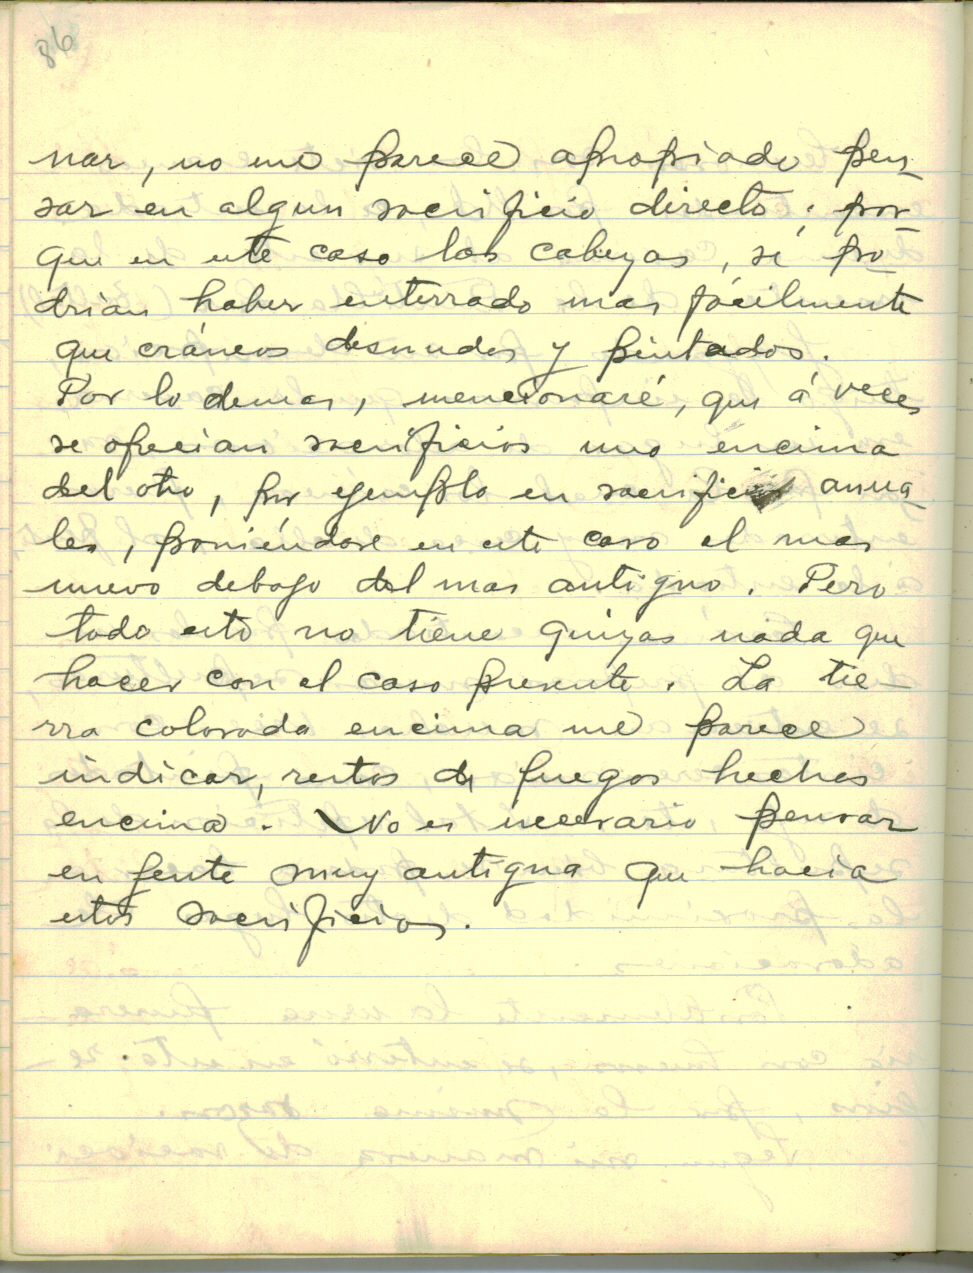 86
nar, no me parece apropiado pen-
sar en algun sacrificio directo; por-
que en este caso las cabezas, sé po-
drian haber enterrado mas fácilmente
que cráneos desnudos y pintados.
Por lo demas, mencionaré, que á veces
se ofrecian sacrificios uno encima
del otro, por ejemplo en sacrificios annua
les, poniéndose en este caso el mas
nuevo debajo del mas antiguo. Pero
todo esto no tiene quizas nada que
hacer con el caso presente. La tie-
rra colorada encima me parece
indicar, restos de fuegos hechos
encima. No es necesario pensar
en gente muy antigua que hacia
estos sacrificios.